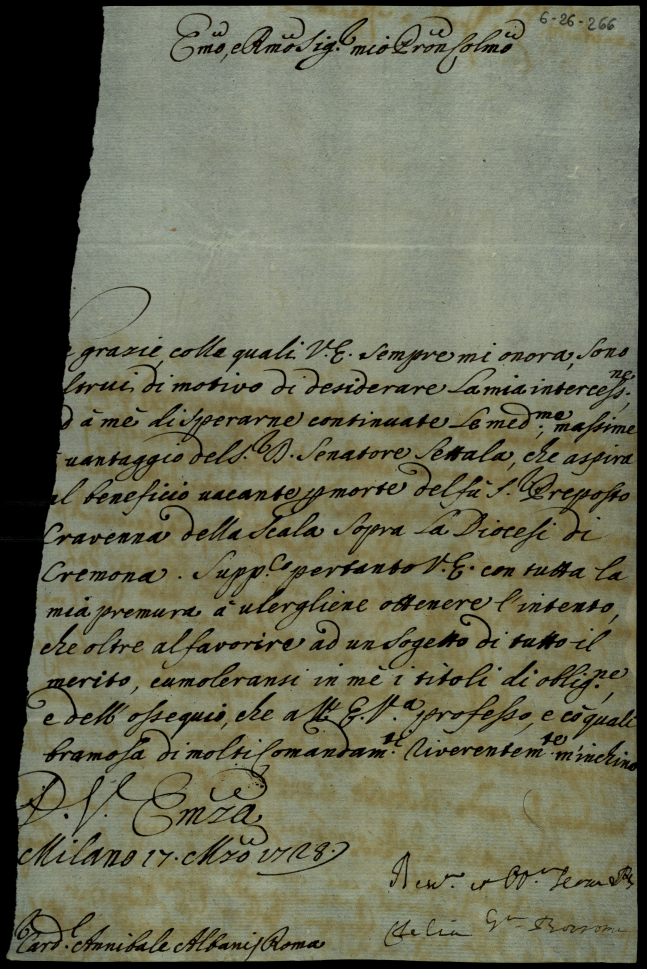 6-26-266
Em͞o, e Rm͞o Sig.r mio Pron͞ Colm͞o
grazie, colle quali V.E. sempre mi onora, sono
altrui di motivo di desiderare la mia intercess.ne,
ed à mè di sperarne continuate le med.me, massime
à vantaggio del S.r D. Senatore Settala, che aspira
al beneficio vacante p morte del fù S.r Preposto
Cravenna della Scala sopra la Diocesi di
Cremona. Supp.co pertanto V.E. con tutta la
mia premura à ulergliene ottenere l'intento,
che oltre al favorire ad un sogetto di tutto il
merito, cumoleransi in mè i titoli di oblig.ne,
e dell'ossequio, che all' E.V.a professo, e cō quali
bramosa di molti Comandam.ti riverentem.te m'inchino
D. V. Em͞za
Milano 17. Mzo 1728.
Clelia Borromeo
Card.l Annibale Albani / Roma